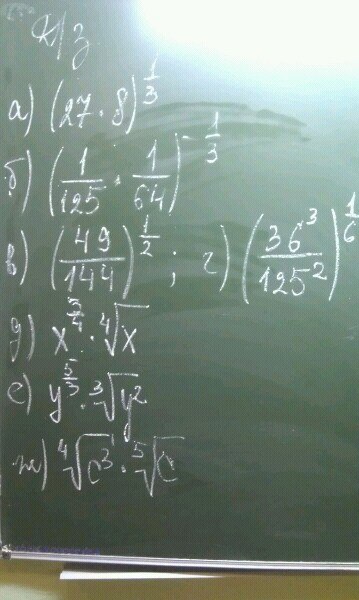 К/з
а) (27 · 8)^(1/3)
б) (1/125 · 1/64)^(-1/3)
в) (49/144)^(1/2) ; г) (36³/125²)^(1/6)
д) x^(3/4) · ⁴√x
е) y^(5/3) · ³√y²
ж) ⁴√c³ · ⁵√c